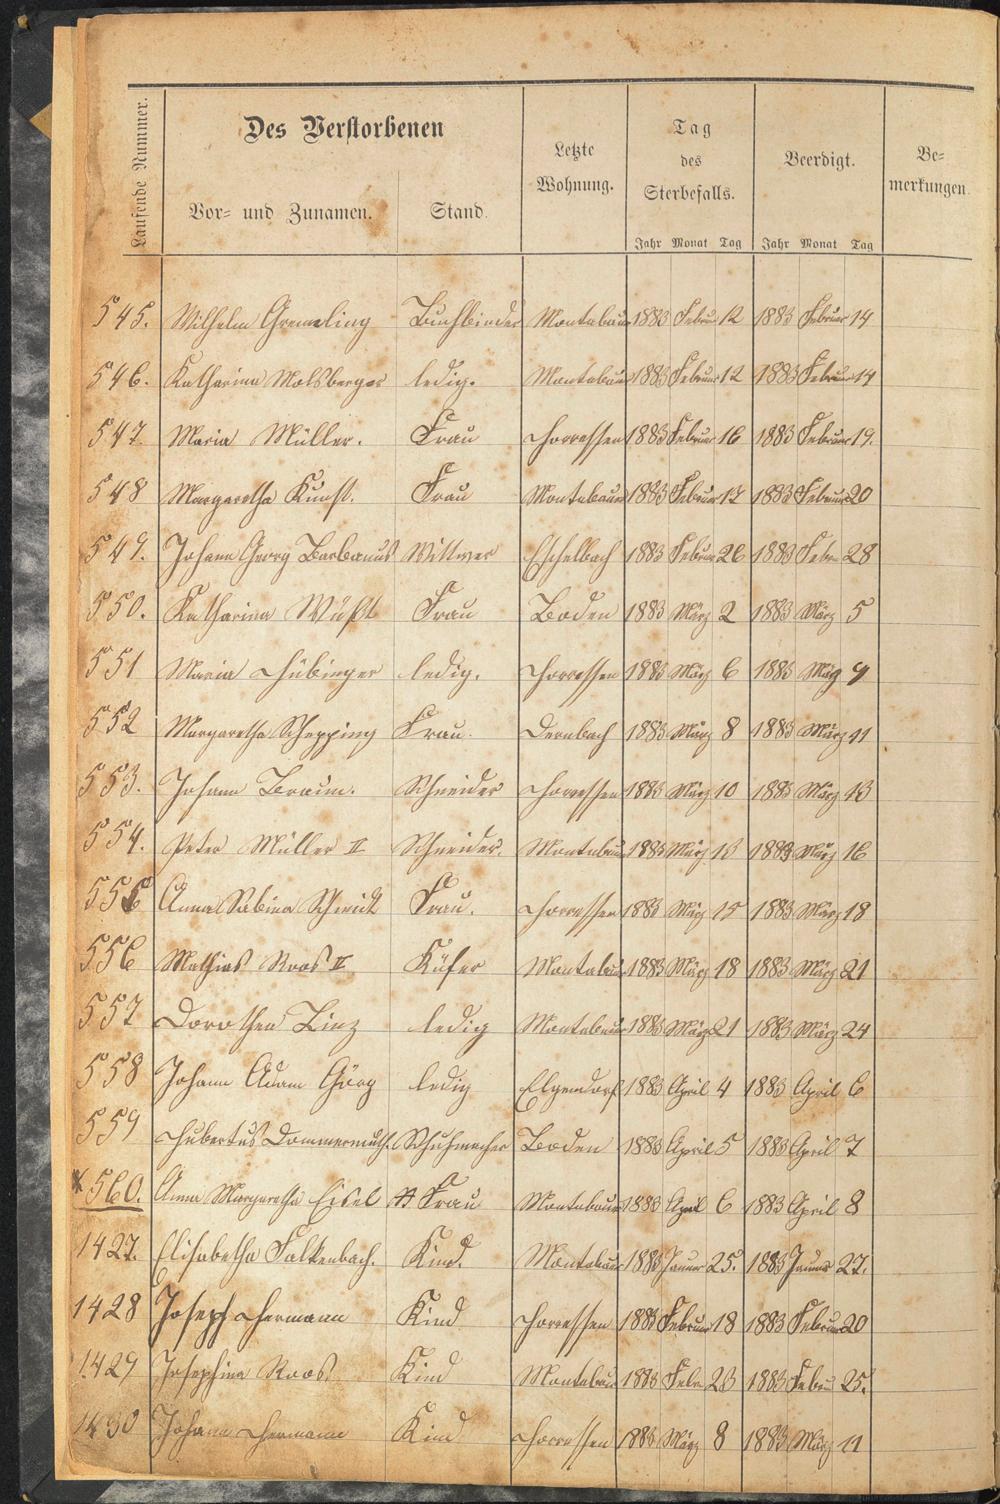 Laufende Nummer.
Des Verstorbenen
Vor- und Zunamen.
Stand.
Letzte
Wohnung.
Tag
des
Sterbefalls.
Jahr Monat Tag
Beerdigt.
Jahr Monat Tag
Be-
merkungen.
545. Wilhelm Gremeling Buchbinder Montabaur 1883 Februar 12 1883 Februar 14
546. Katharina Molsberger ledig. Montabaur 1883 Februar 12 1883 Februar 14
547. Maria Müller. Frau Horressen 1883 Februar 16 1883 Februar 19.
548 Margaretha Kunst. Frau Montabaur 1883 Februar 17 1883 Februar 20
549. Johann Georg Barbanus Wittwer Eschelbach 1883 Februar 26 1883 Febr 28
550. Katharina Wüst Frau Boden 1883 März 2 1883 März 5
551 Maria Hübinger ledig. Horressen 1883 März 6 1883 März 9
552 Margaretha Schepping Frau. Dernbach 1883 März 8 1883 März 11
553. Johann Braun. Schneider Horressen 1883 März 10 1883 März 13
554. Peter Müller II Schneider. Montabaur 1883 März 13 1883 März 16
555 Anna Sabina Schmidt Frau. Horressen 1883 März 15 1883 März 18
556 Mathias Roos II Küfer Montabaur 1883 März 18 1883 März 21
557 Dorothea Linz ledig Montabaur 1883 März 21 1883 März 24
558 Johann Adam Görg ledig Elgendorf 1883 April 4 1883 April 6
559 Hubertus Dommermuth. Schuhmacher Boden 1883 April 5 1883 April 7
x 560. Anna Margaretha Eisel Frau Montabaur 1883 April 6 1883 April 8
1427. Elisabetha Falkenbach. Kind. Montabaur 1883 Januar 25. 1883 Januar 27.
1428 Joseph Hermann Kind Horressen 1883 Februar 18 1883 Februar 20
1429 Josephina Roos Kind Montabaur 1883 Febr 23 1883 Febru 25.
1430 Johann Hermann Kind Horressen 1883 März 8 1883 März 11